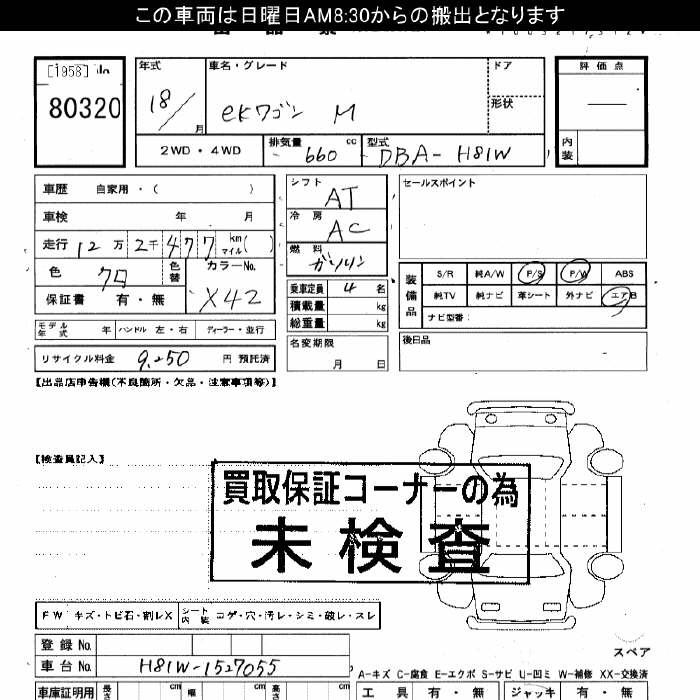 この車両は日曜日AM8:30からの搬出となります
[1958]
80320
年式 車名・グレード ドア 評価点
18/ 月 eKワゴン M 形状
2WD・4WD 排気量 660 cc 型式 DBA-H81W 内装
車歴 自家用・( )
車検 年 月
走行 12万2千477 km マイル( )
色 クロ 色替 カラーNo.
保証書 有・無 X42
シフト AT
冷房 AC
燃料 ガソリン
乗車定員 4 名
積載量 kg
総重量 kg
セールスポイント
装備品 S/R 純A/W P/S P/W ABS
純TV 純ナビ 革シート 外ナビ エアB
ナビ型番:
モデル年式 年 ハンドル 左・右 ディーラー・並行
名変期限 月 日
後日品
リサイクル料金 9,250 円 預託済
【出品店申告欄(不良箇所・欠品・注意事項等)】
【検査員記入】
買取保証コーナーの為
未検査
FW キズ・トビ石・割レX シート内装 コゲ・穴・汚レ・シミ・破レ・スレ
登録No.
車台No. H81W-1527055
スペア
A-キズ C-腐食 E-エクボ S-サビ U-凹ミ W-補修 XX-交換済
車庫証明用 長さ cm 幅 cm 高さ cm 工具 有・無 ジャッキ 有・無